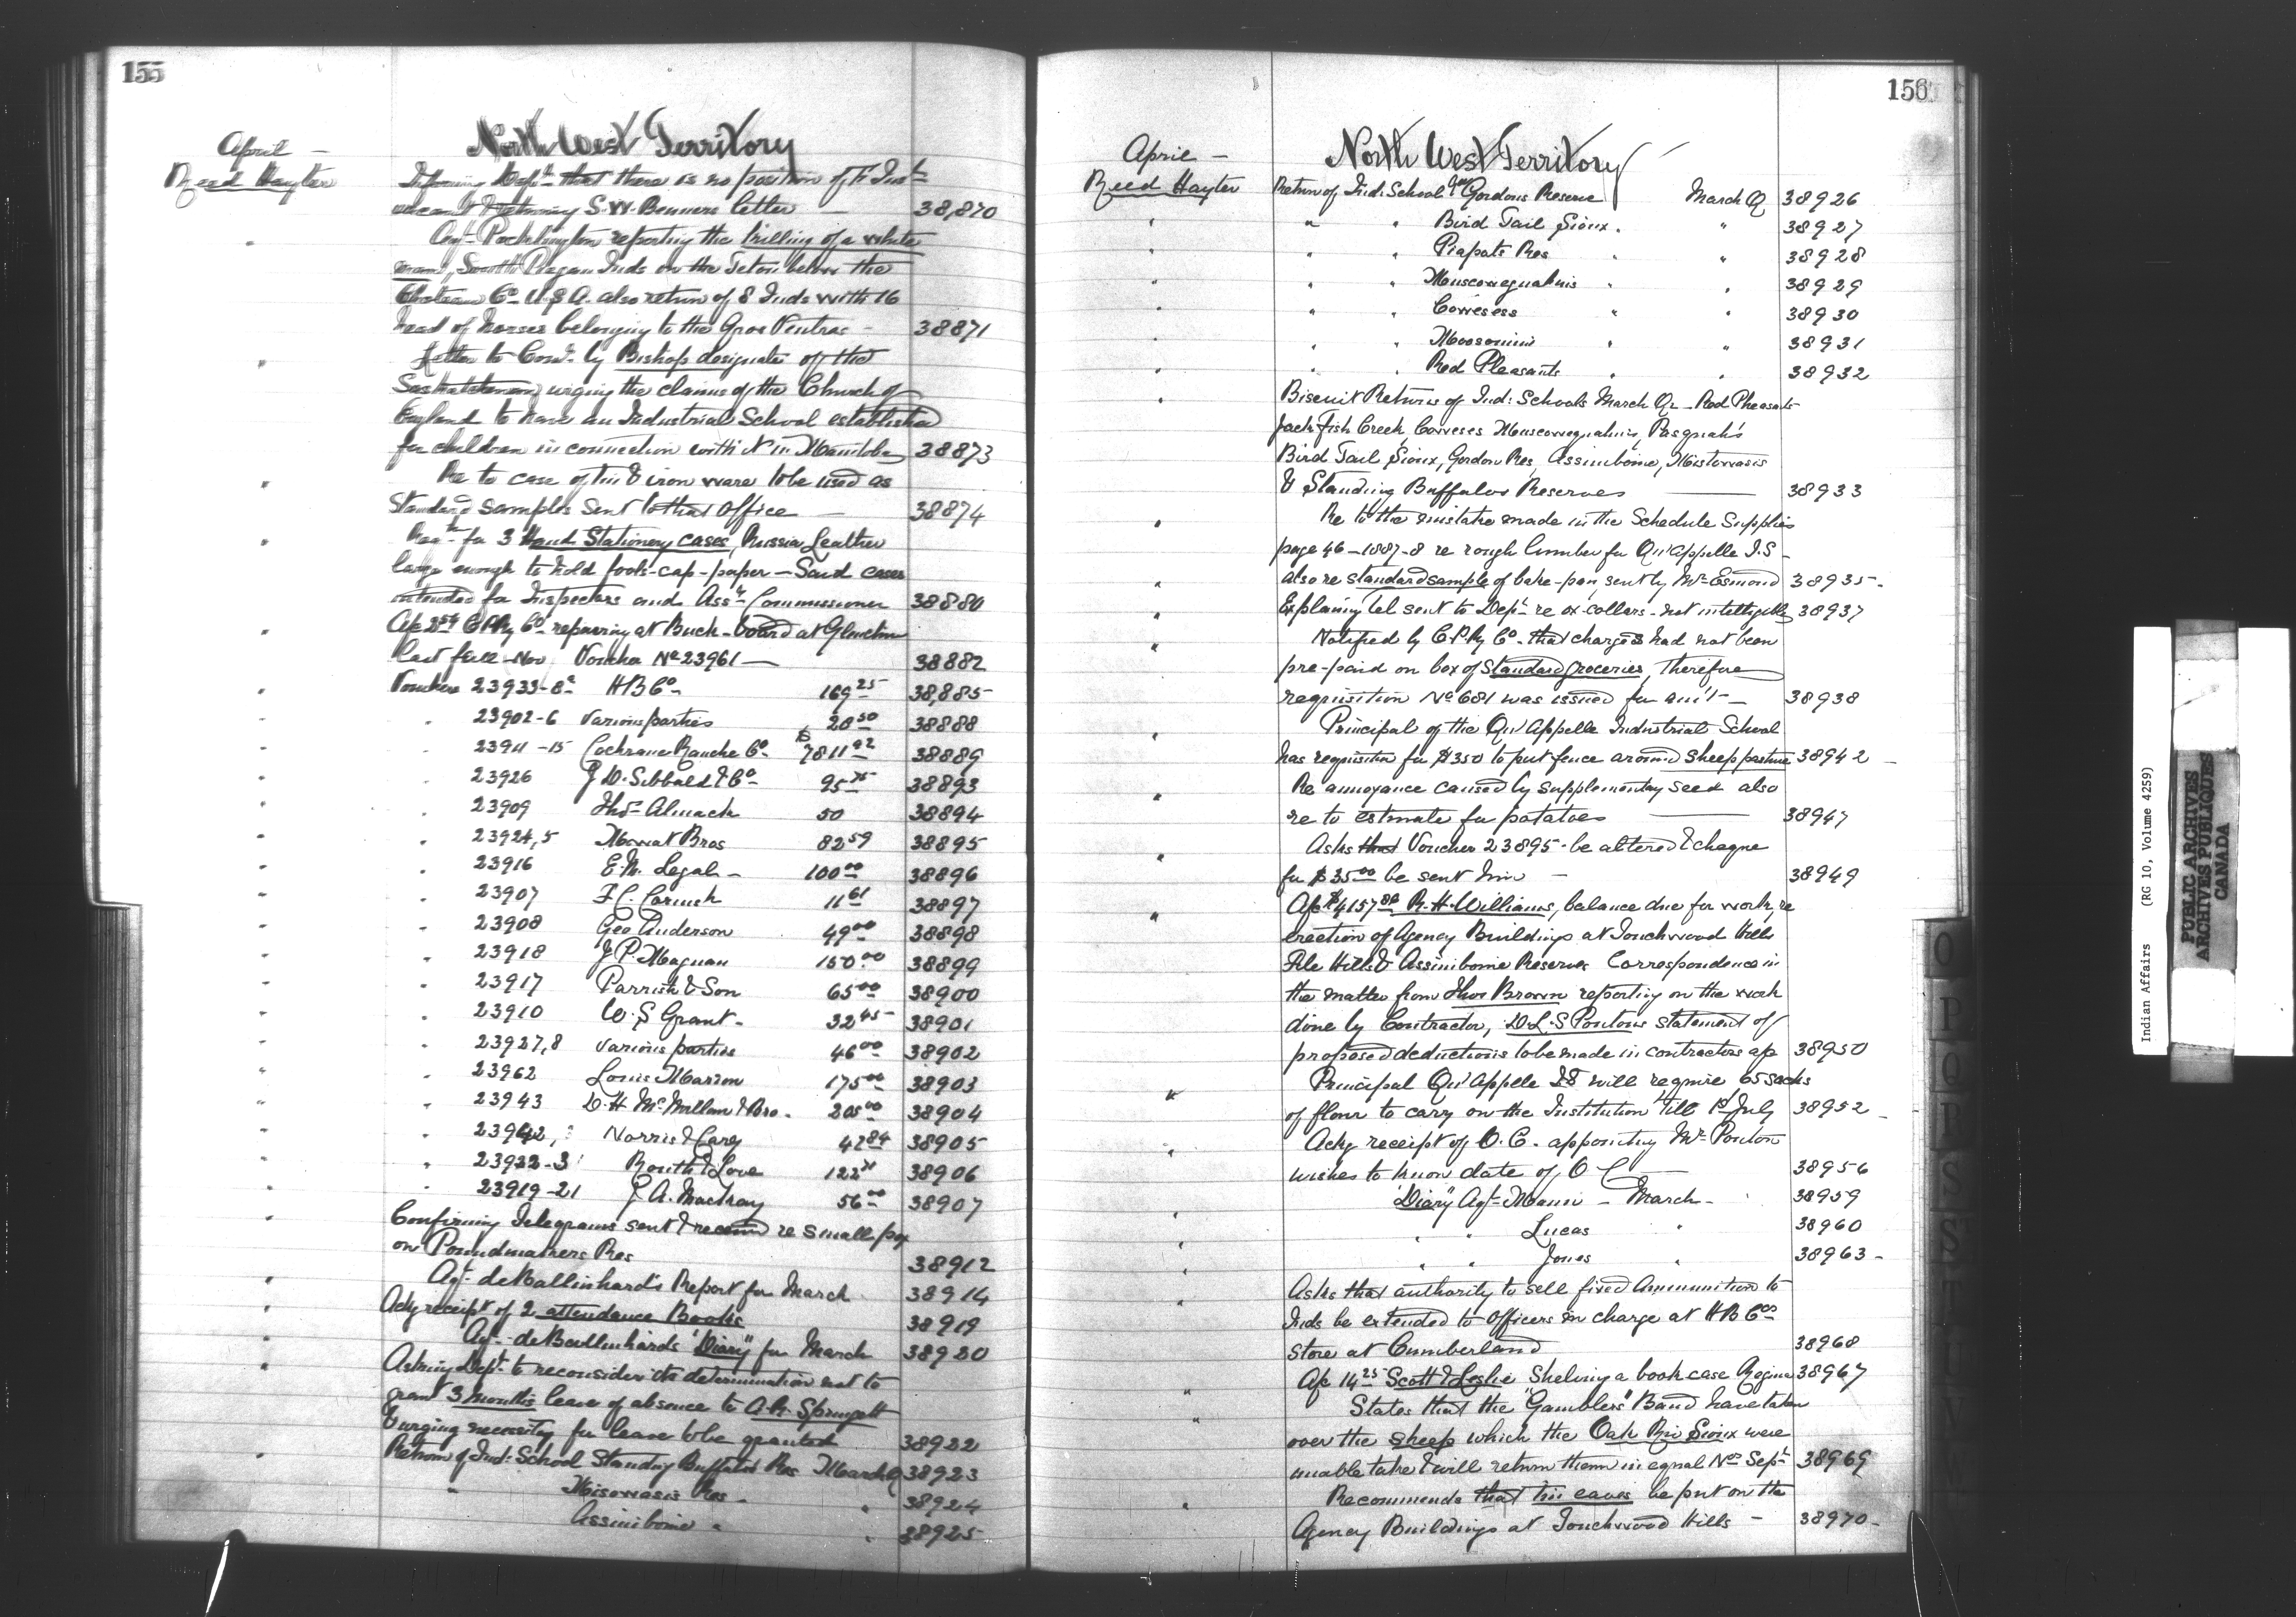 155
North West Territory
April -
Reed Hayter
Informing Dept. that there is no position of F. Inst.
vacant & returning S.W. Benners letter - 38,870
Agt. Pocklington reporting the killing of a white
man, South Piegan Inds on the Teton below the
Choteau Co. U.S.A. also return of 8 Inds with 16
head of horses belonging to the Gros Ventras - 38871
Letter to Comr. by Bishop designate of the
Saskatchewan urging the claims of the Church of
England to have an Industrial School established
for children in connection with it in Manitoba 38873
Re to case of tin & iron ware to be used as
Standard samples sent to that Office - 38874
for 3 Hand Stationery cases, Russia Leather
large enough to hold fools-cap-paper - Said cases
intended for Inspectors and Asst. Commissioner 38880
C P Ry Co. repairing at Buck-board at Gleichen
last fall - Nov Voucher No 23961 - 38882
Vouchers 23933-8 H B Co. 169 25 38,885
" 23902-6 Various parties 20 50 38888
" 23911-15 Cochrane Ranche Co. $7811 92 38889
" 23926 J D. Sibbald & Co. 95 75 38893
" 23909 Thos. Almack 50 38894
" 23924,5 Mowat Bros 82 59 38895
" 23916 E.M. Legal - 100 00 38896
" 23907 F C. Cornish 11 61 38897
" 23908 Geo Anderson 49 00 38898
" 23918 J P. Magnan 150 00 38899
" 23917 Parrish & Son 65 00 38900
" 23910 W. S Grant - 32 45 38901
" 23927,8 Various parties 46 00 38902
" 23962 Louis Marion 175 00 38903
" 23943 D. H McMillan & Bro. 205 00 38904
" 23942, Norris & Carey 42 84 38905
" 23922-3 Routh & Love 122 38906
" 23919-21 J. A. Mackay 56 00 38907
Confirming Telegrams sent & received re Small pox
on Poundmakers Res 38912
Agt. deBallinhard's Report for March 38914
Ackg receipt of 2 attendance Books 38919
Agt. deBallinhards "Diary" for March 38920
Asking Dept. to reconsider its determination not to
grant 3 months leave of absence to A.R. Springett
& urging necessity for leave to be granted 38922
Return of Ind: School Standing Buffalos Res March Q 38923
" Misowasis Res. " 38924
Assiniboine " " 38925
156
North West Territory
April -
Reed Hayter
Return of Ind: School Gordons Reserve March Q 38926
" " Bird Tail Sioux. " 38927
" " Piapots Res " " 38928
" " Muscowequahnis " " 38929
" " Cowesess " " 38930
" " Moosomins " " 38931
" " Red Pleasants " " 38932
Biscuit Returns of Ind: Schools March Qr - Red Pheasants
Jack Fish Creek, Coweses Muscowequahnis, Pasquah's
Bird Tail Sioux, Gordon Res, Assiniboine, Mistowasis
& Standing Buffalos Reserves - 38933
Re to the mistake made in the Schedule Supplies
page 46 - 1887-8 re rough lumber for Qu'Appelle I.S -
also re standard sample of bake-pan, sent by Mr. Esmond 38935-
Explaing tel sent to Dept. re ox-collars - not intelligible 38937
Notified by C.P. Ry Co. that charges had not been
pre-paid on box of Standard groceries, therefore
requisition No 681 was issued for am't - 38938
Principal of the Qu'Appelle Industrial School
has requisition for $350 to put fence around sheep pasture 38942 -
Re annoyance caused by supplementary seed also
re to estimate for potatoes - 38947
Asks that Voucher 23895 - be altered & cheque
for $35 00 be sent him - 38949
Ap $4157 80 R. H. Williams, balance due for work, re
erection of Agency Buildings at Touchwood Hills
File Hills & Assiniboine Reserves Correspondence in
the matter from Thos Brown reporting on the work
done by Contractor, D.L.S Pontons statement of
proposed deductions to be made in contractors a/c 38950
Principal Qu'Appelle I.S will require 65 sacks
of flour to carry on the Institution till 1st July 38952 -
Ackg receipt of O.C. appointing Mr. Ponton
wishes to know date of O C - 38956
"Diary" Agt. Mann - March - 38959
" " Lucas " 38960
" " Jones " 38963 -
Asks that authority to sell fixed Ammunition to
Inds be extended to Officers in charge at H B Cos
store at Cumberland 38968
Ap 14 25 Scott & Leslie Shelving a book case Regina 38967
States that the "Gamblers" Band have taken
over the sheep which the Oak Riv Sioux were
unable take & will return them in equal Nos. Sept. 38969
Recommends that tin eaves be put on the
Agency Buildings at Touchwood Hills - 38970-
O
P
Q
R
S
T
U
V
W
Indian Affairs (RG 10, Volume 4259)
PUBLIC ARCHIVES
ARCHIVES PUBLIQUES
CANADA